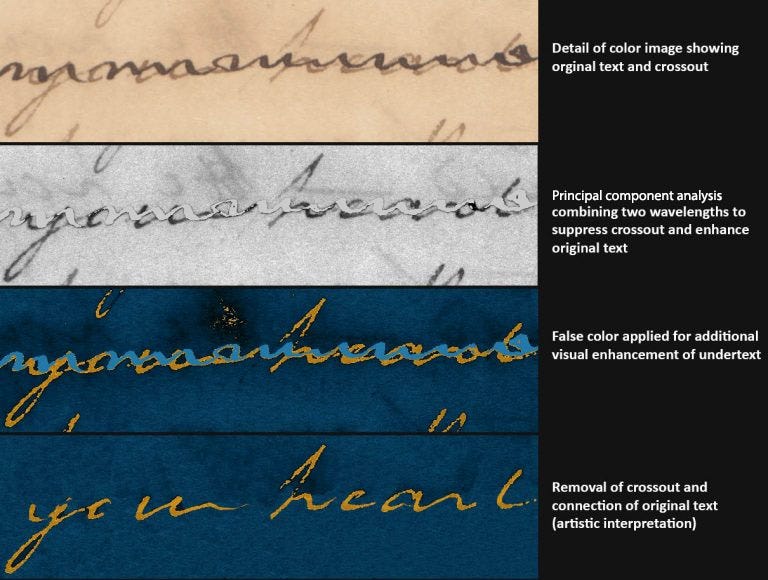 Detail of color image showing
orginal text and crossout
Principal component analysis
combining two wavelengths to
suppress crossout and enhance
original text
False color applied for additional
visual enhancement of undertext
your heart
Removal of crossout and
connection of original text
(artistic interpretation)